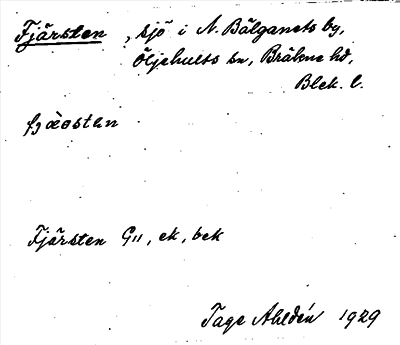 Fjärsten, sjö i N. Bälganets by,
Öljehults sn, Bräkne hd,
Blek. l.
fjæ̀ostən
Fjärsten G11, ek, bek
Tage Ahldén 1929